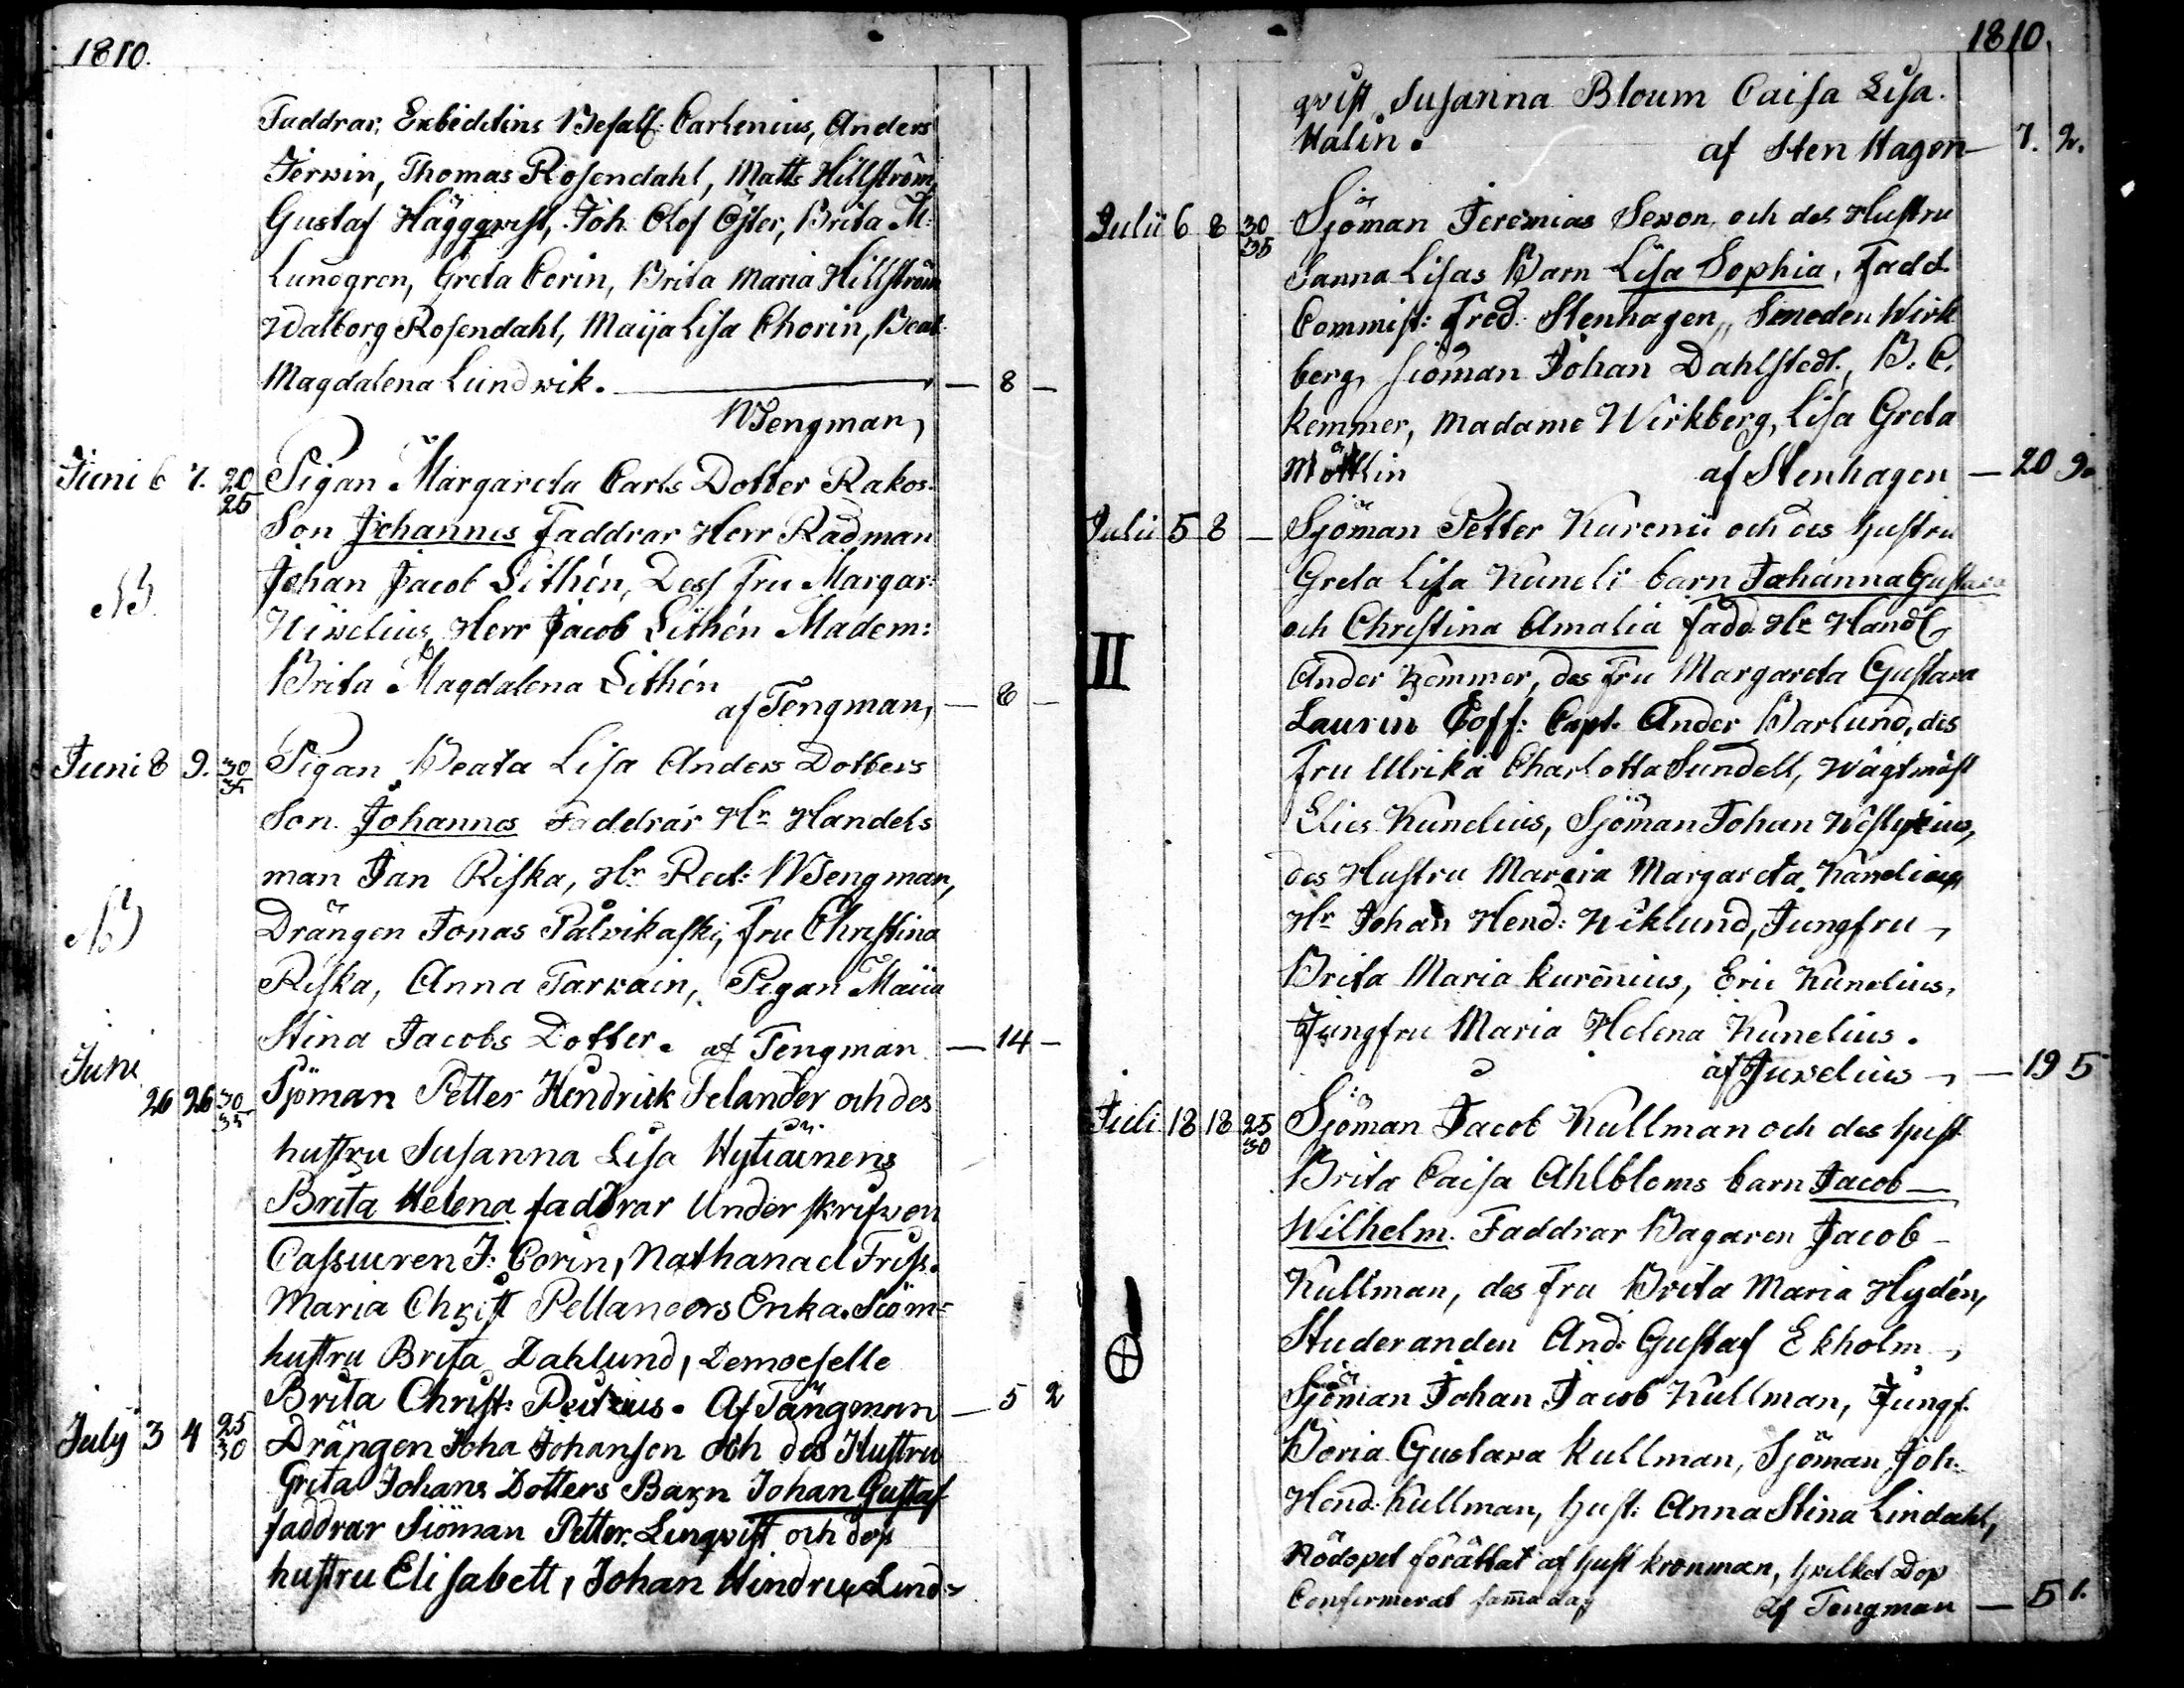 1810.
Faddrar, Exbeditins Befalh: Carlenius, Anders
Ferwin, Thomas Rosendahl, Matts Hillström,
Gustaf Häggqwist, Joh. Olof Öster, Brita M:
Lundgren, Greta Corin, Brita Maria Hillström
Walborg Rosendahl, Maija Lisa Chorin, Beat:
Magdalena Lundwik. — 8 —
WTengman,
Juni 6 7. 20 Pigan Margareta Carls Dotter Rakos.
25
Son Johannes Faddrar Herr Rådman
Johan Jacob Lithén, Dess Fru Margar:
NB.
Herr Jacob Lithén Madem:
Brita Magdalena Lithén
af Tengman, — 6 —
Juni 8 9. 30 Pigan Beata Lisa Anders Dotters
35
Son. Johannes Faddrar Hr Handels
man Jan Riska, Hr Rect: WTengman,
NB
Drängen Jonas Palvikaski, Fru Christina
Riska, Anna Tarvain, Pigan Maiia
Stina Jacobs Dotter. af Tengman — 14 —
Juni
26 26 30 Sjöman Petter Hendrick Felander och des
35
hustru Susanna Lisa Hytiäinens
Brita Helena faddrar Underskrifwen
Cassuren J: Corin, Nathanael Friss.
Maria Christ Pellanders Enka. Siöm=
hustru Brita Dahlund, Demoeselle
Brita Christ: Af Tängman — 5 2
July 3 4 25 Drängen Joha Johanson och des Hustru
30
Grita Johans Dotters Barn Johan Gustaf
faddrar Siöman Petter Linqvist och des
hustru Elisabett, Johan Hindric Lind=
1810.
qvist Susanna Bloum Caisa Lisa.
Malin. af Stenhagen — 7. 2.
Julii 6 8 30 Sjöman Jeremias Sexon, och des Hustru
35
Sanna Lisas Barn Lisa Sophia, Fadd.
Commiss: Fred: Stenhagen, Smeden Wirk
berg, siöman Johan Dahlstedt, B. C.
Kemmer, Madame Wirkberg, Lisa Greta
Möttlin af Stenhagen — 20 9.
Julii 5 8 — Sjöman Petter Kurenii och des hustru
Greta Lisa Kuneli barn Johanna Gustava
och Christina Amalia fadd. Hr Handl
II
Ander Kemmer, des Fru Margareta Gustava
Laurin Coff: Capt. Ander Barlund, des
Fru Ulrika Charlotta Sundell, Wågtmäst
Elies Kunelius, Sjöman Johan
des Hustru Mareia Margareta Kunelius
Hr Johan Hend: Wiklund, Jungfru
Brita Maria Kurenius, Eric Kunelius,
Jungfru Maria Helena Kunelius.
af Juvelius — 19 5
Juli 18 18 25 Sjöman Jacob Kullman och des hust
30
Brita Caisa Ahlbloms barn Jacob —
Wilhelm. Faddrar Bagaren Jacob —
Kullman, des Fru Brita Maria Hydén,
Studeranden And: Gustaf Ekholm,
Sjöman Johan Jacob Kullman, Jungf.
Boria Gustava Kullman, Sjöman Joh.
Hend: Kullman, hust: Anna Stina Lindahl,
Nödopet förättat af hust Kronman, hvilket Dop
Confirmerat samma dag Af Tengman — 5 1.